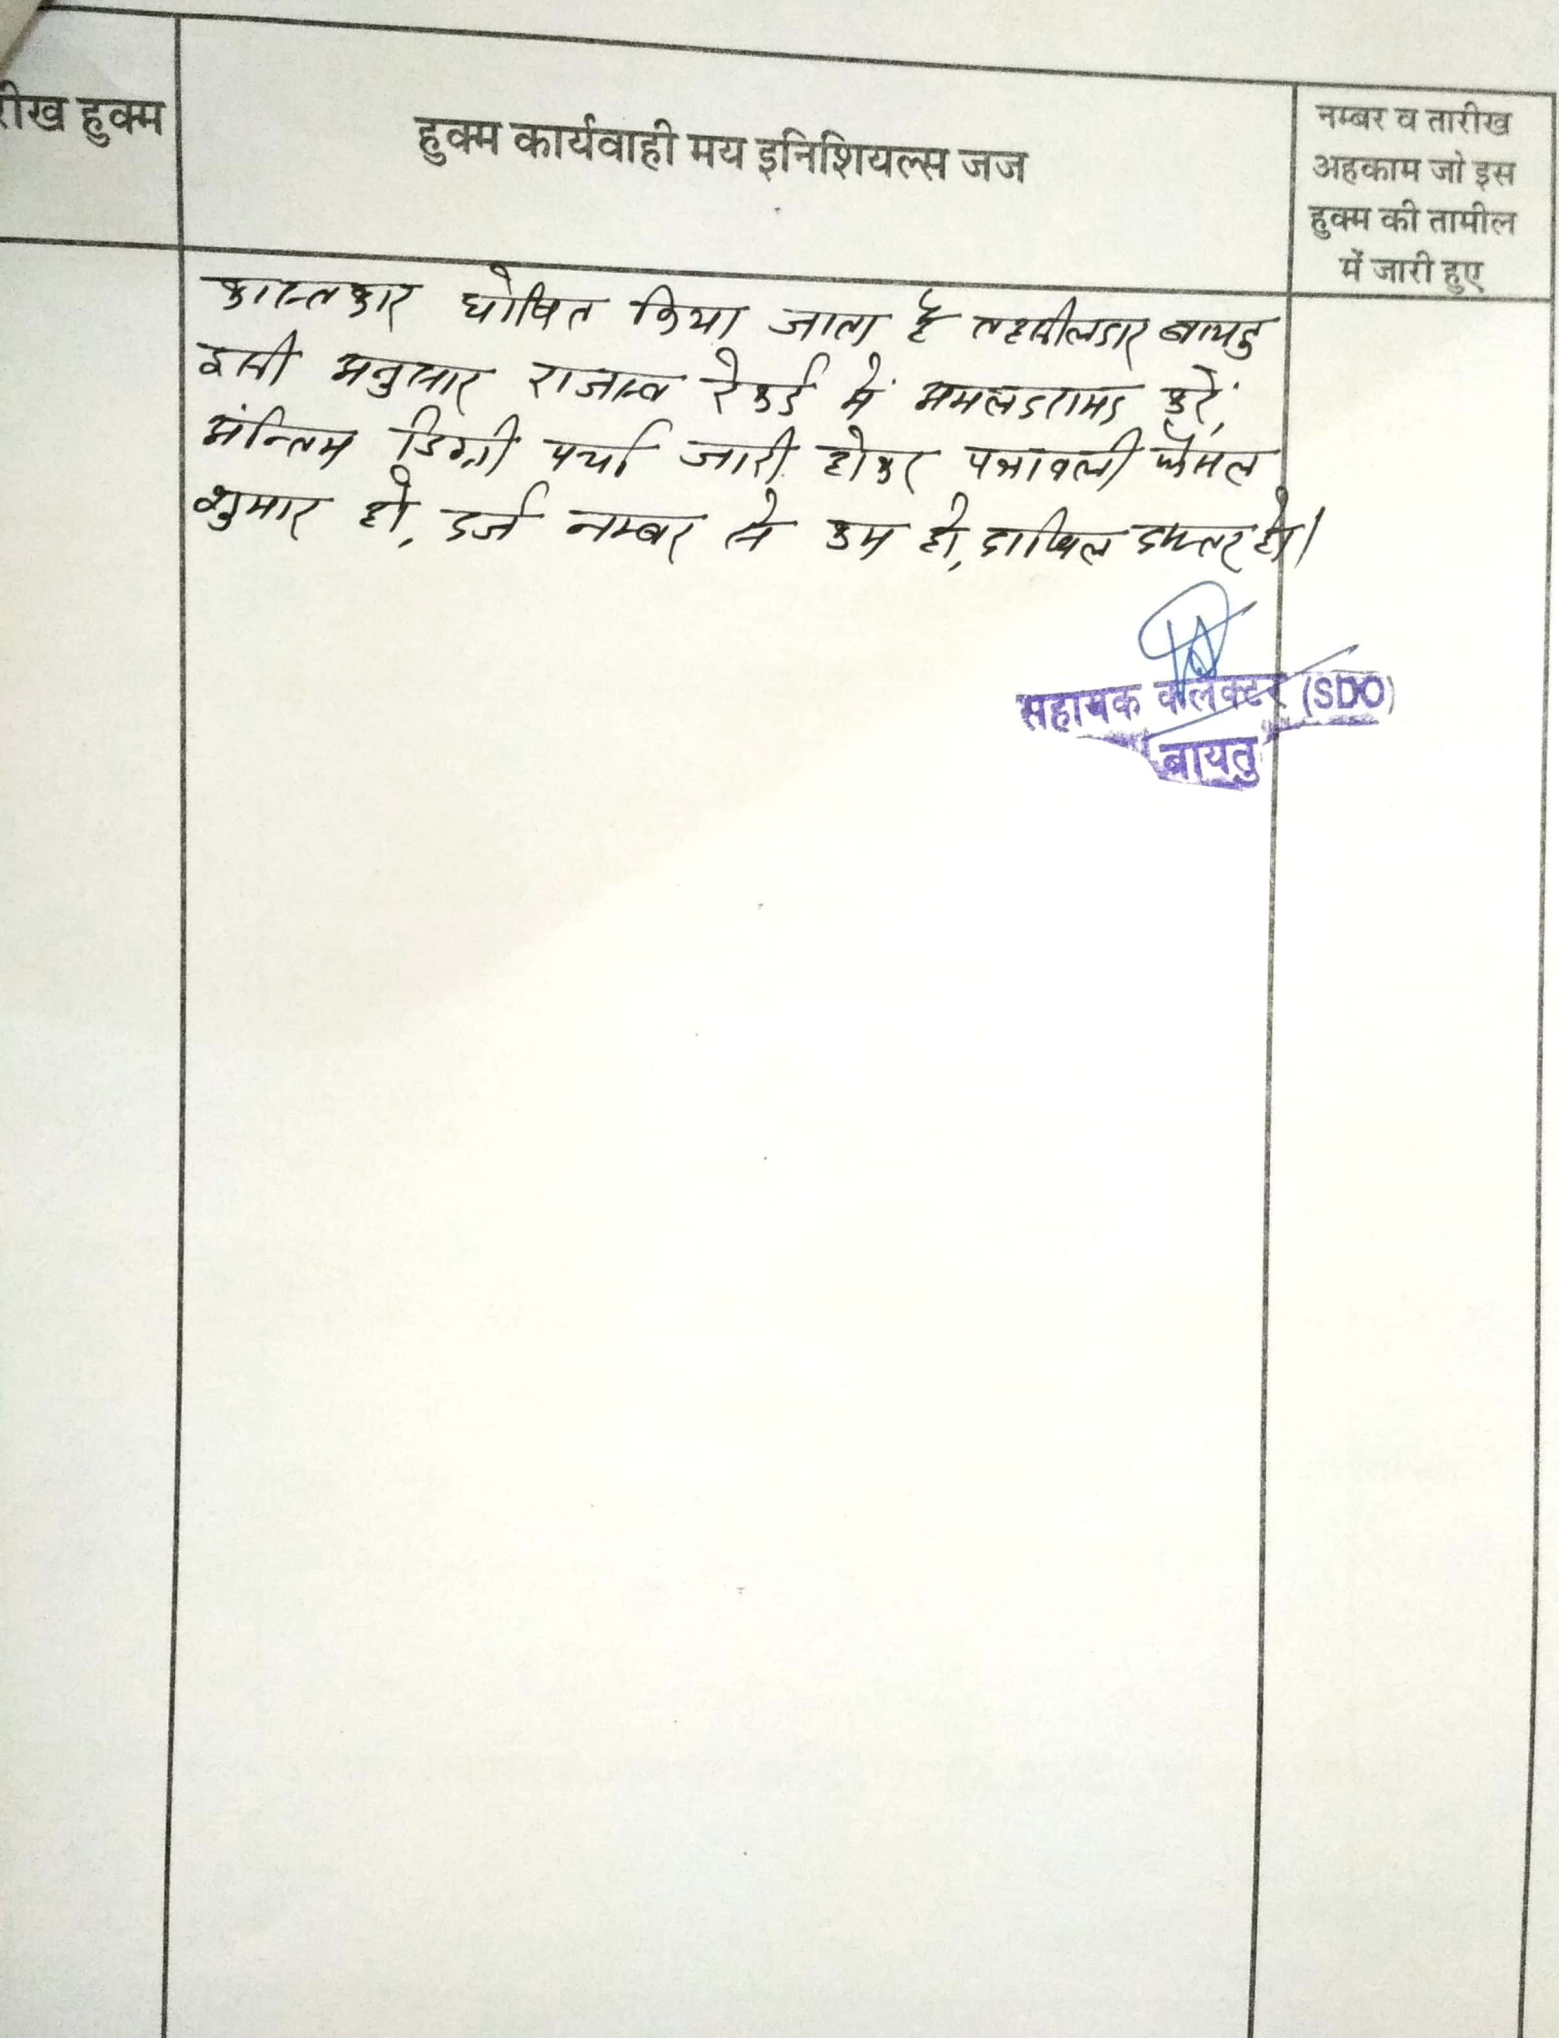 रीख हुक्म
हुक्म कार्यवाही मय इनिशियल्स जज
नम्बर व तारीख
अहकाम जो इस
हुक्म की तामील
में जारी हुए
काश्तकार घोषित किया जाता है तहसीलदार बायतु
इसी अनुसार राजस्व रेकर्ड में अमलदरामद करें,
अन्तिम डिक्री पर्चा जारी होकर पत्रावली फैसल
शुमार हो, दर्ज नम्बर से कम हो, दाखिल दफ्तर हो।
सहायक कलेक्टर (SDO)
बायतु